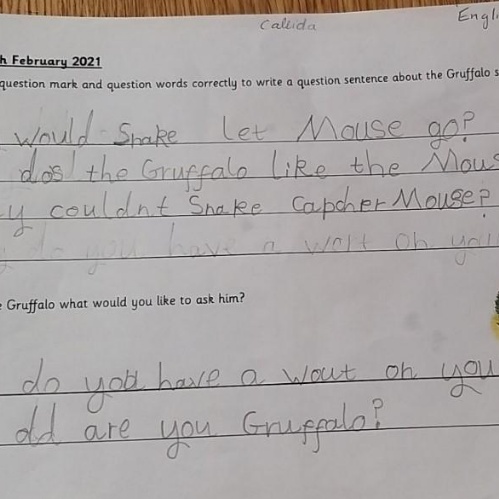 Calida
Engli
h February 2021
question mark and question words correctly to write a question sentence about the Gruffalo s
would Snake let Mouse go?
dos the Gruffalo like the Mous
y couldnt Snake Capcher Mouse?
do you have a wort on you
e Gruffalo what would you like to ask him?
do you have a wout on you
old are you Gruffalo?